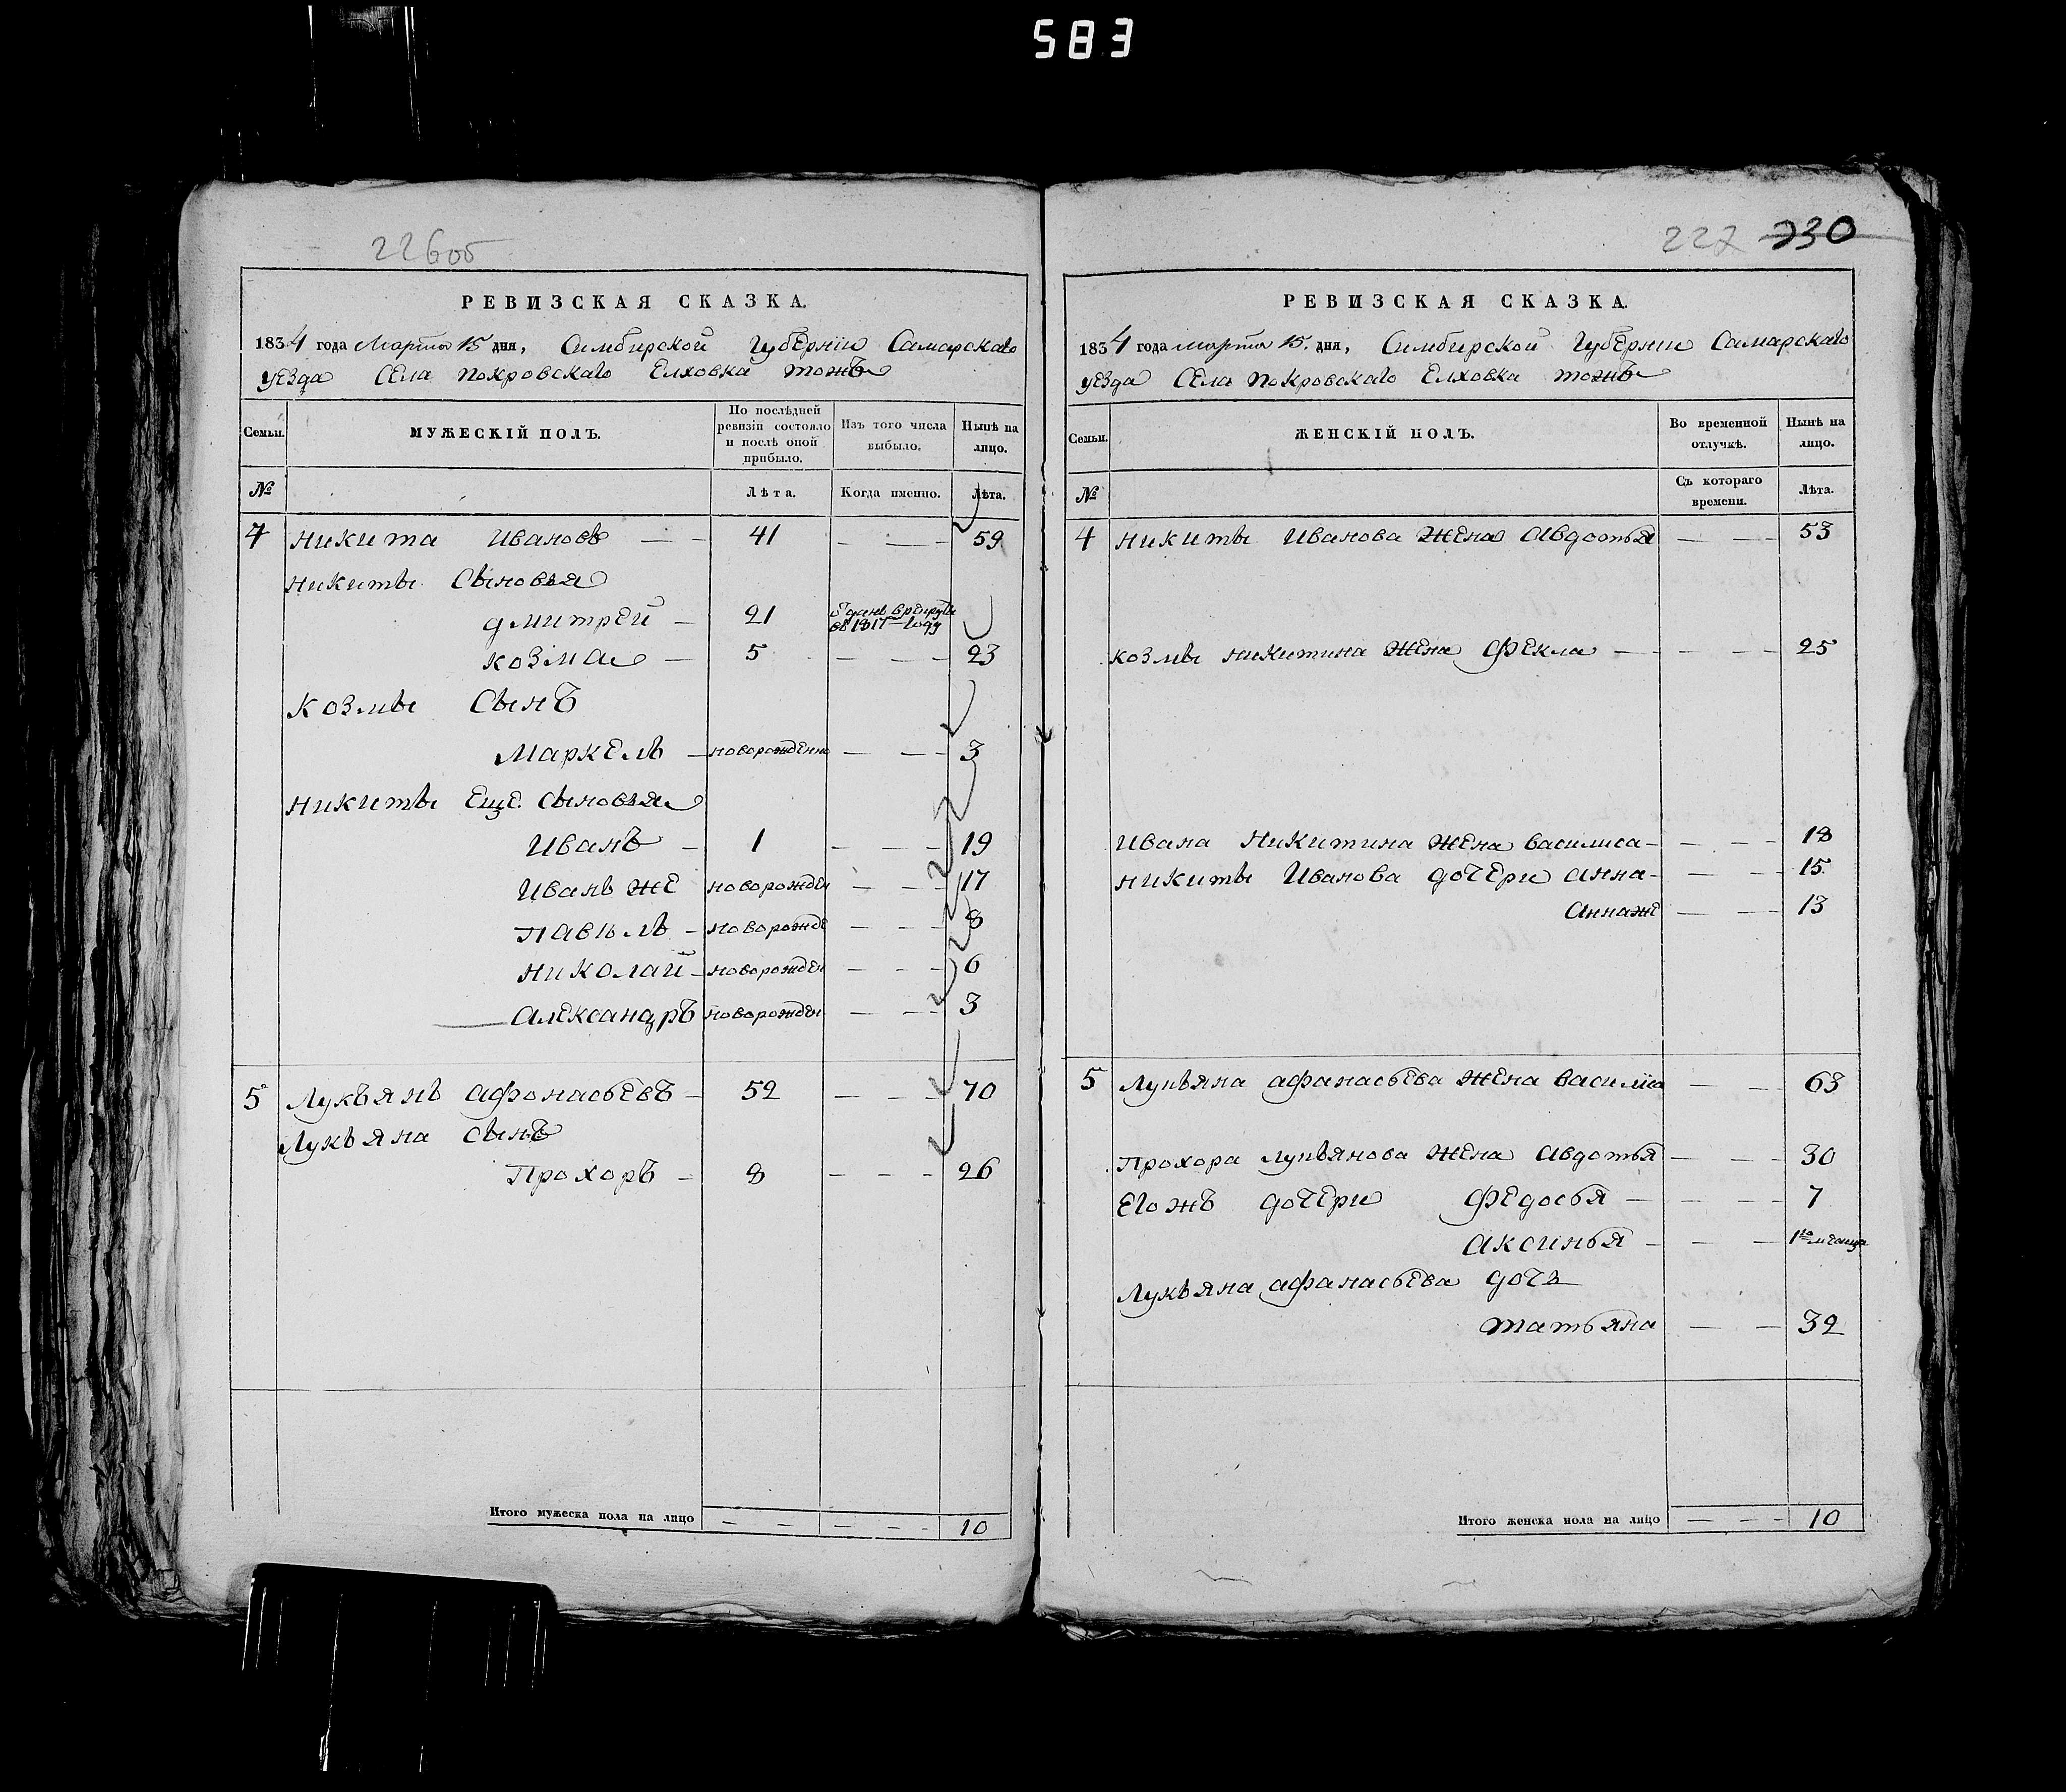 583
226об
РЕВИЗСКАЯ СКАЗКА.
1834 года Марта 15 дня, Симбирской Губернии Самарскаго
уезда Села Покровскаго Елховка тожъ
Семьи. МУЖЕСКІЙ ПОЛЪ. По послѣдней ревизіи состояло и послѣ оной прибыло. Изъ того числа выбыло. Нынѣ на лицо.
№ Лѣта. Когда именно. Лѣта.
4 Никита Ивановъ — — 41 — — — 59
Никиты Сыновья
Дмитрей — 21 зданъ в рекруты въ 1817 году
Козма — 5 — — — 23
Козмы Сынъ
Маркелъ — новорожденны — — — 3
Никиты Еще Сыновья
Иванъ — 1 — — — 19
Иванъ же новорожден — — — 17
Павылъ — новорожде — — — 8
Николай — новорожден — — — 6
Александръ новорожден — — — 3
5 Лукъянъ афонасьевъ — 52 — — — 70
Лукъяна сынъ
Прохоръ — 8 — — — 26
Итого мужеска пола на лицо — — — — — 10
227 730
РЕВИЗСКАЯ СКАЗКА.
1834 года марта 15. дня, Симбирской Губернии Самарскаго
уезда Села Покровскаго Елховка тожъ
Семьи. ЖЕНСКІЙ ПОЛЪ. Во временной отлучкѣ. Нынѣ на лицо.
№ Съ котораго времени. Лѣта.
4 Никиты Иванова Жена Авдотья — — — 53
Козмы Никитина Жена Фекла — — — — 25
Ивана Никитина Жена василиса — — — — 18
Никиты Иванова дочери анна — — — — 15
Аннаже — — — 13
5 Лукъяна афанасьева жена василиса — — 63
Прохора лукъянова жена авдотья — — — 30
Его жъ дочери Федосья — — — — 7
Аксинья — — — — 1го месяца
Лукъяна афанасьева дочь
татьяна — — 32
Итого женска пола на лицо — — — 10